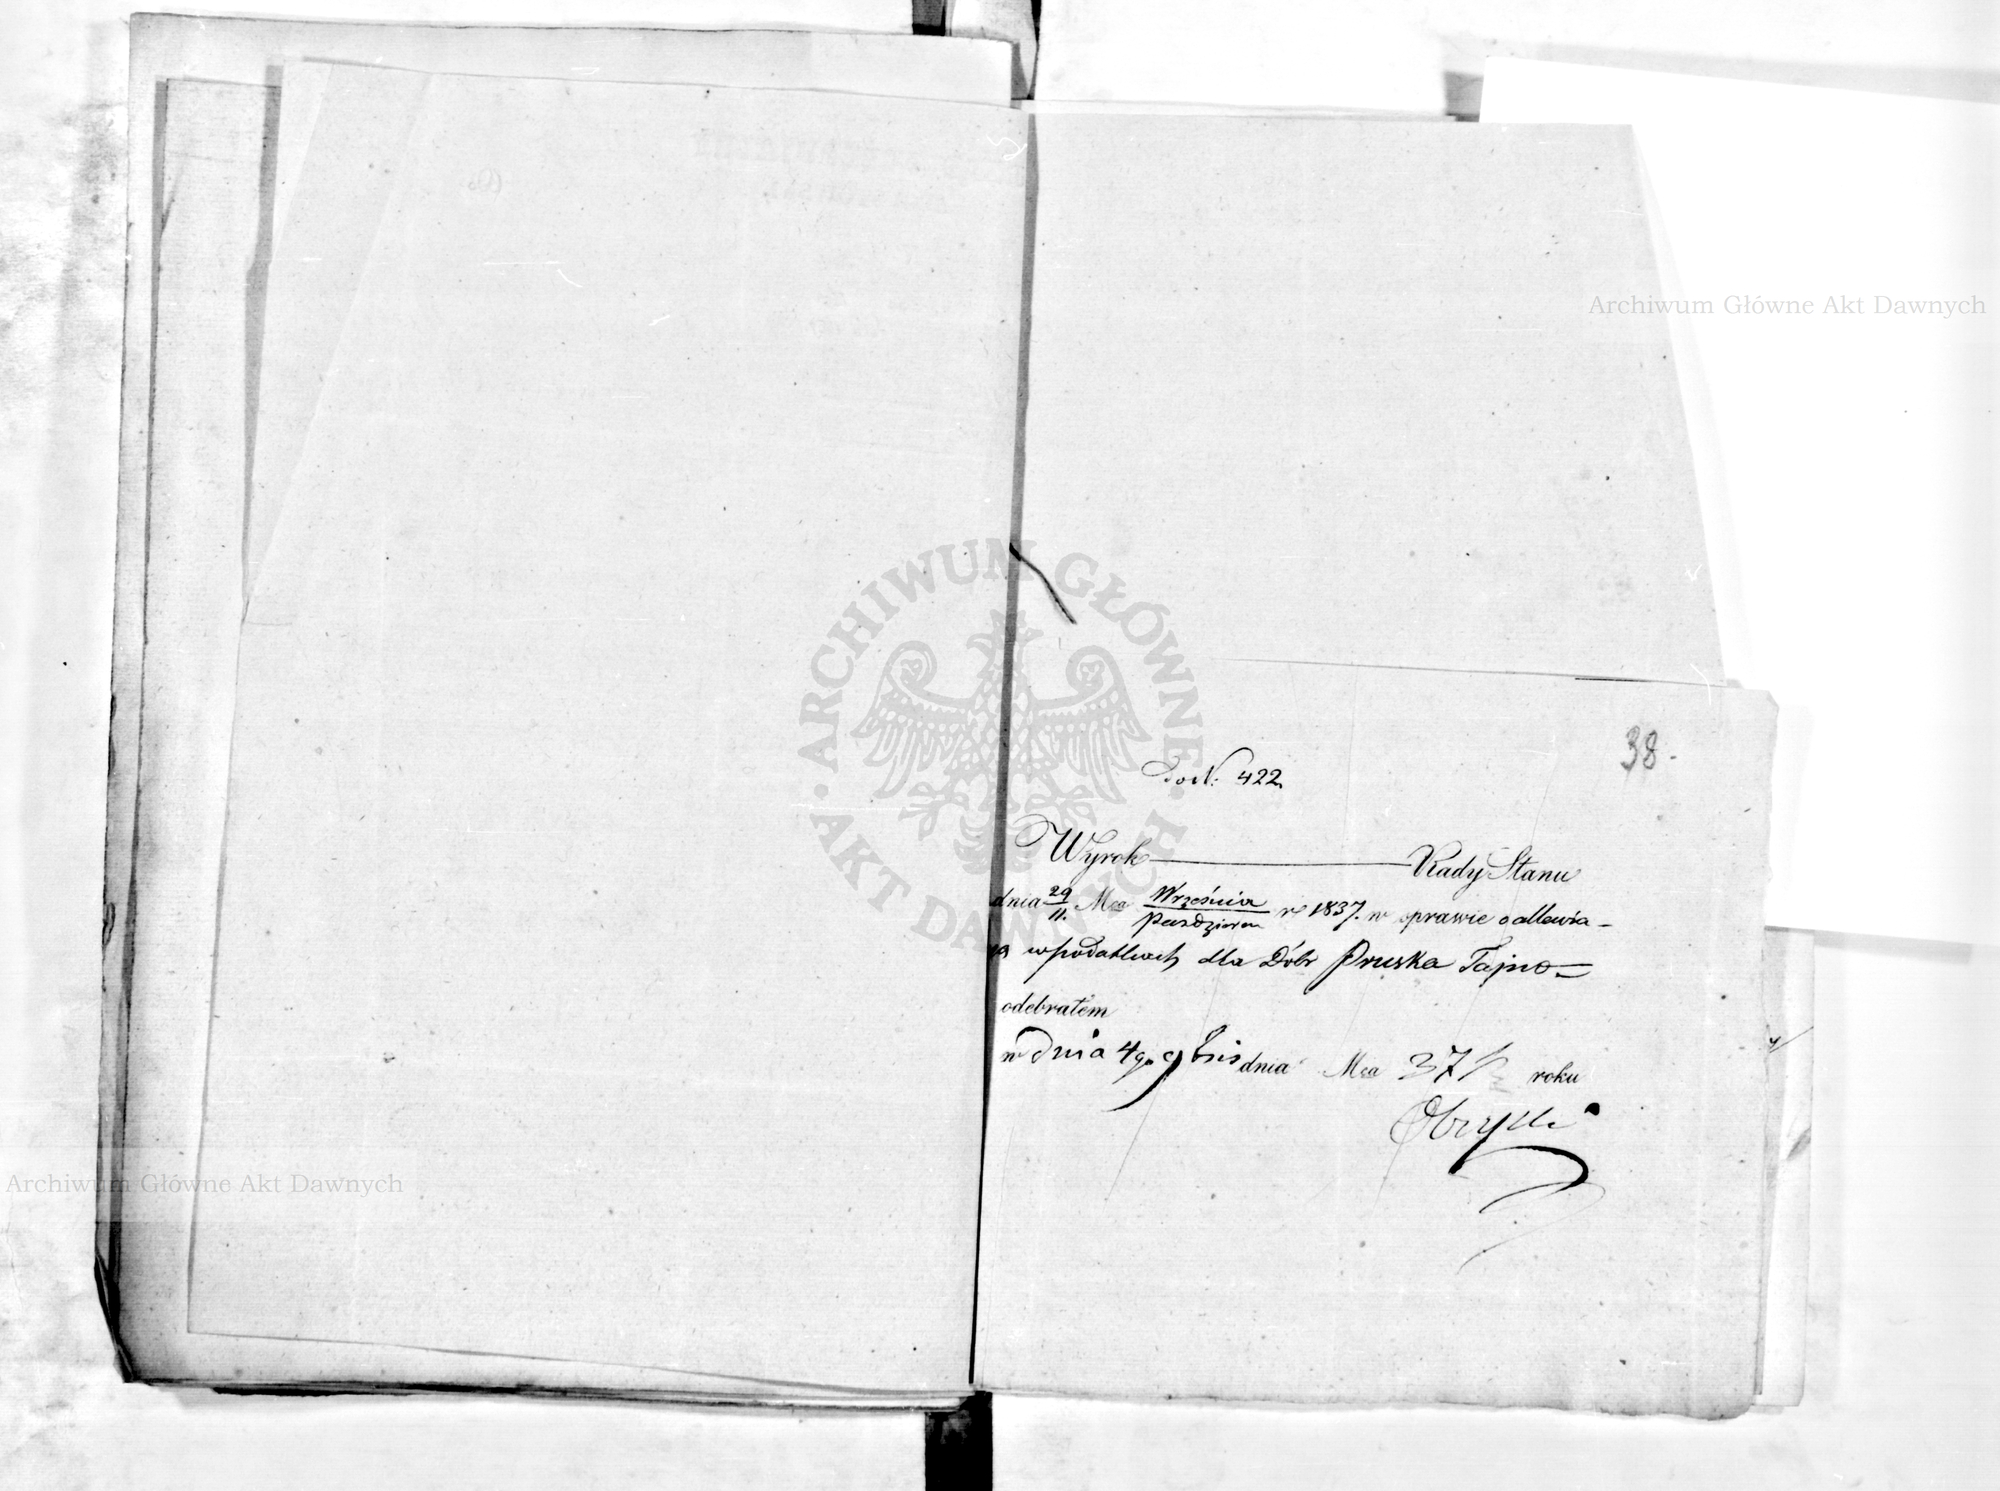 38.
do N: 422.
Wyrok Rady Stanu
dnia 29/11. Mca Września/Październ r 1837. w sprawie o allewia-
w podatkach dla Dóbr Pruska Tajno
odebrałem
w dnia 4go dnia Mca 37 roku
Archiwum Główne Akt Dawnych
Archiwum Główne Akt Dawnych
ARCHIWUM GŁÓWNE AKT DAWNYCH